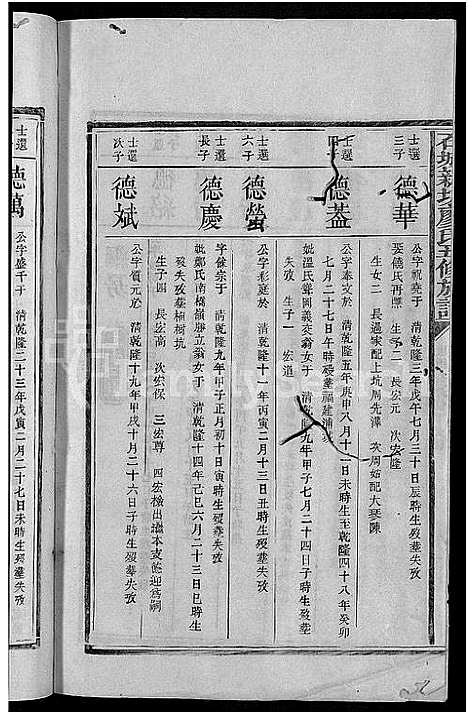 石城新坊廖氏五修族譜
士選三子 德華
公字觀堯于 清乾隆三年戊午七月二十日辰時生歿墓失攷
娶饒氏再醮 生子二 長宏元 次宏隆
生女二 長適家配上坑周先澤 次周姑配大琴陳
士選四子 德蓋
公字奉文於 清乾隆五年庚申八月十一日未時生至乾隆四十八年癸卯
七月二十七日午時歿葬福建浦城
妣溫氏聲國義交翁女于 清乾隆九年甲子七月二十四日子時生歿葬
失攷 生子一 宏道
士選六子 德螢
公字彩庭於 清乾隆十一年丙寅二月十三日丑時生歿墓失攷
士選長子 德慶
字餘宗于 清乾隆九年甲子正月初十日寅時生歿墓失攷
妣鄭氏南橋嶺勝立翁女于 清乾隆十四年己巳六月二十三日巳時生
歿失攷葬柚樹坑
生子四 長宏高 次宏保 三宏尊 四宏檢出繼本支德迎爲嗣
士選次子 德斌
公字質元於 清乾隆十九年甲戌十月二十六日子時生歿墓失攷
士選 德萬
公字盛千于 清乾隆二十三年戊寅二月二十七日未時生歿墓失攷